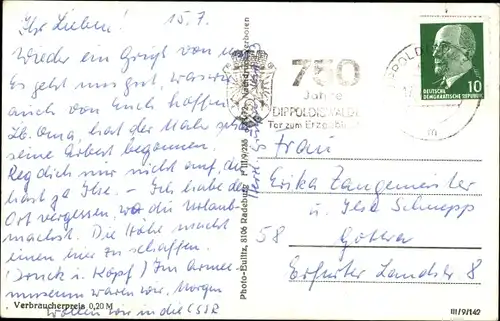 Ihr Lieben! 15.7.
Wieder ein Gruß von uns
Es geht uns gut, was wir
auch von Euch hoffen
Lb. Oma, hat der Maler schon
seine Arbeit begonnen.
Reg dich nur nicht auf, du
hast ja Ilse. – Ich habe den
Ort vergessen, wo du Urlaub
machst. Die Höhe macht
einen hier zu schaffen.
(Druck i. Kopf) Im Armee-
museum waren wir. Morgen
wollen wir in die CSSR
Verbraucherpreis 0,20 M
Photo-Eulitz, 8106 Radeburg
III/9/235
750
Jahre
DIPPOLDISWALDE
Tor zum Erzgebirge
DEUTSCHE
DEMOKRATISCHE REPUBLIK
10
m
Frau
Erika Zangemeister
u. Ilse Schnepp
58 Gotha
Erfurter Landstr. 8
III/9/142